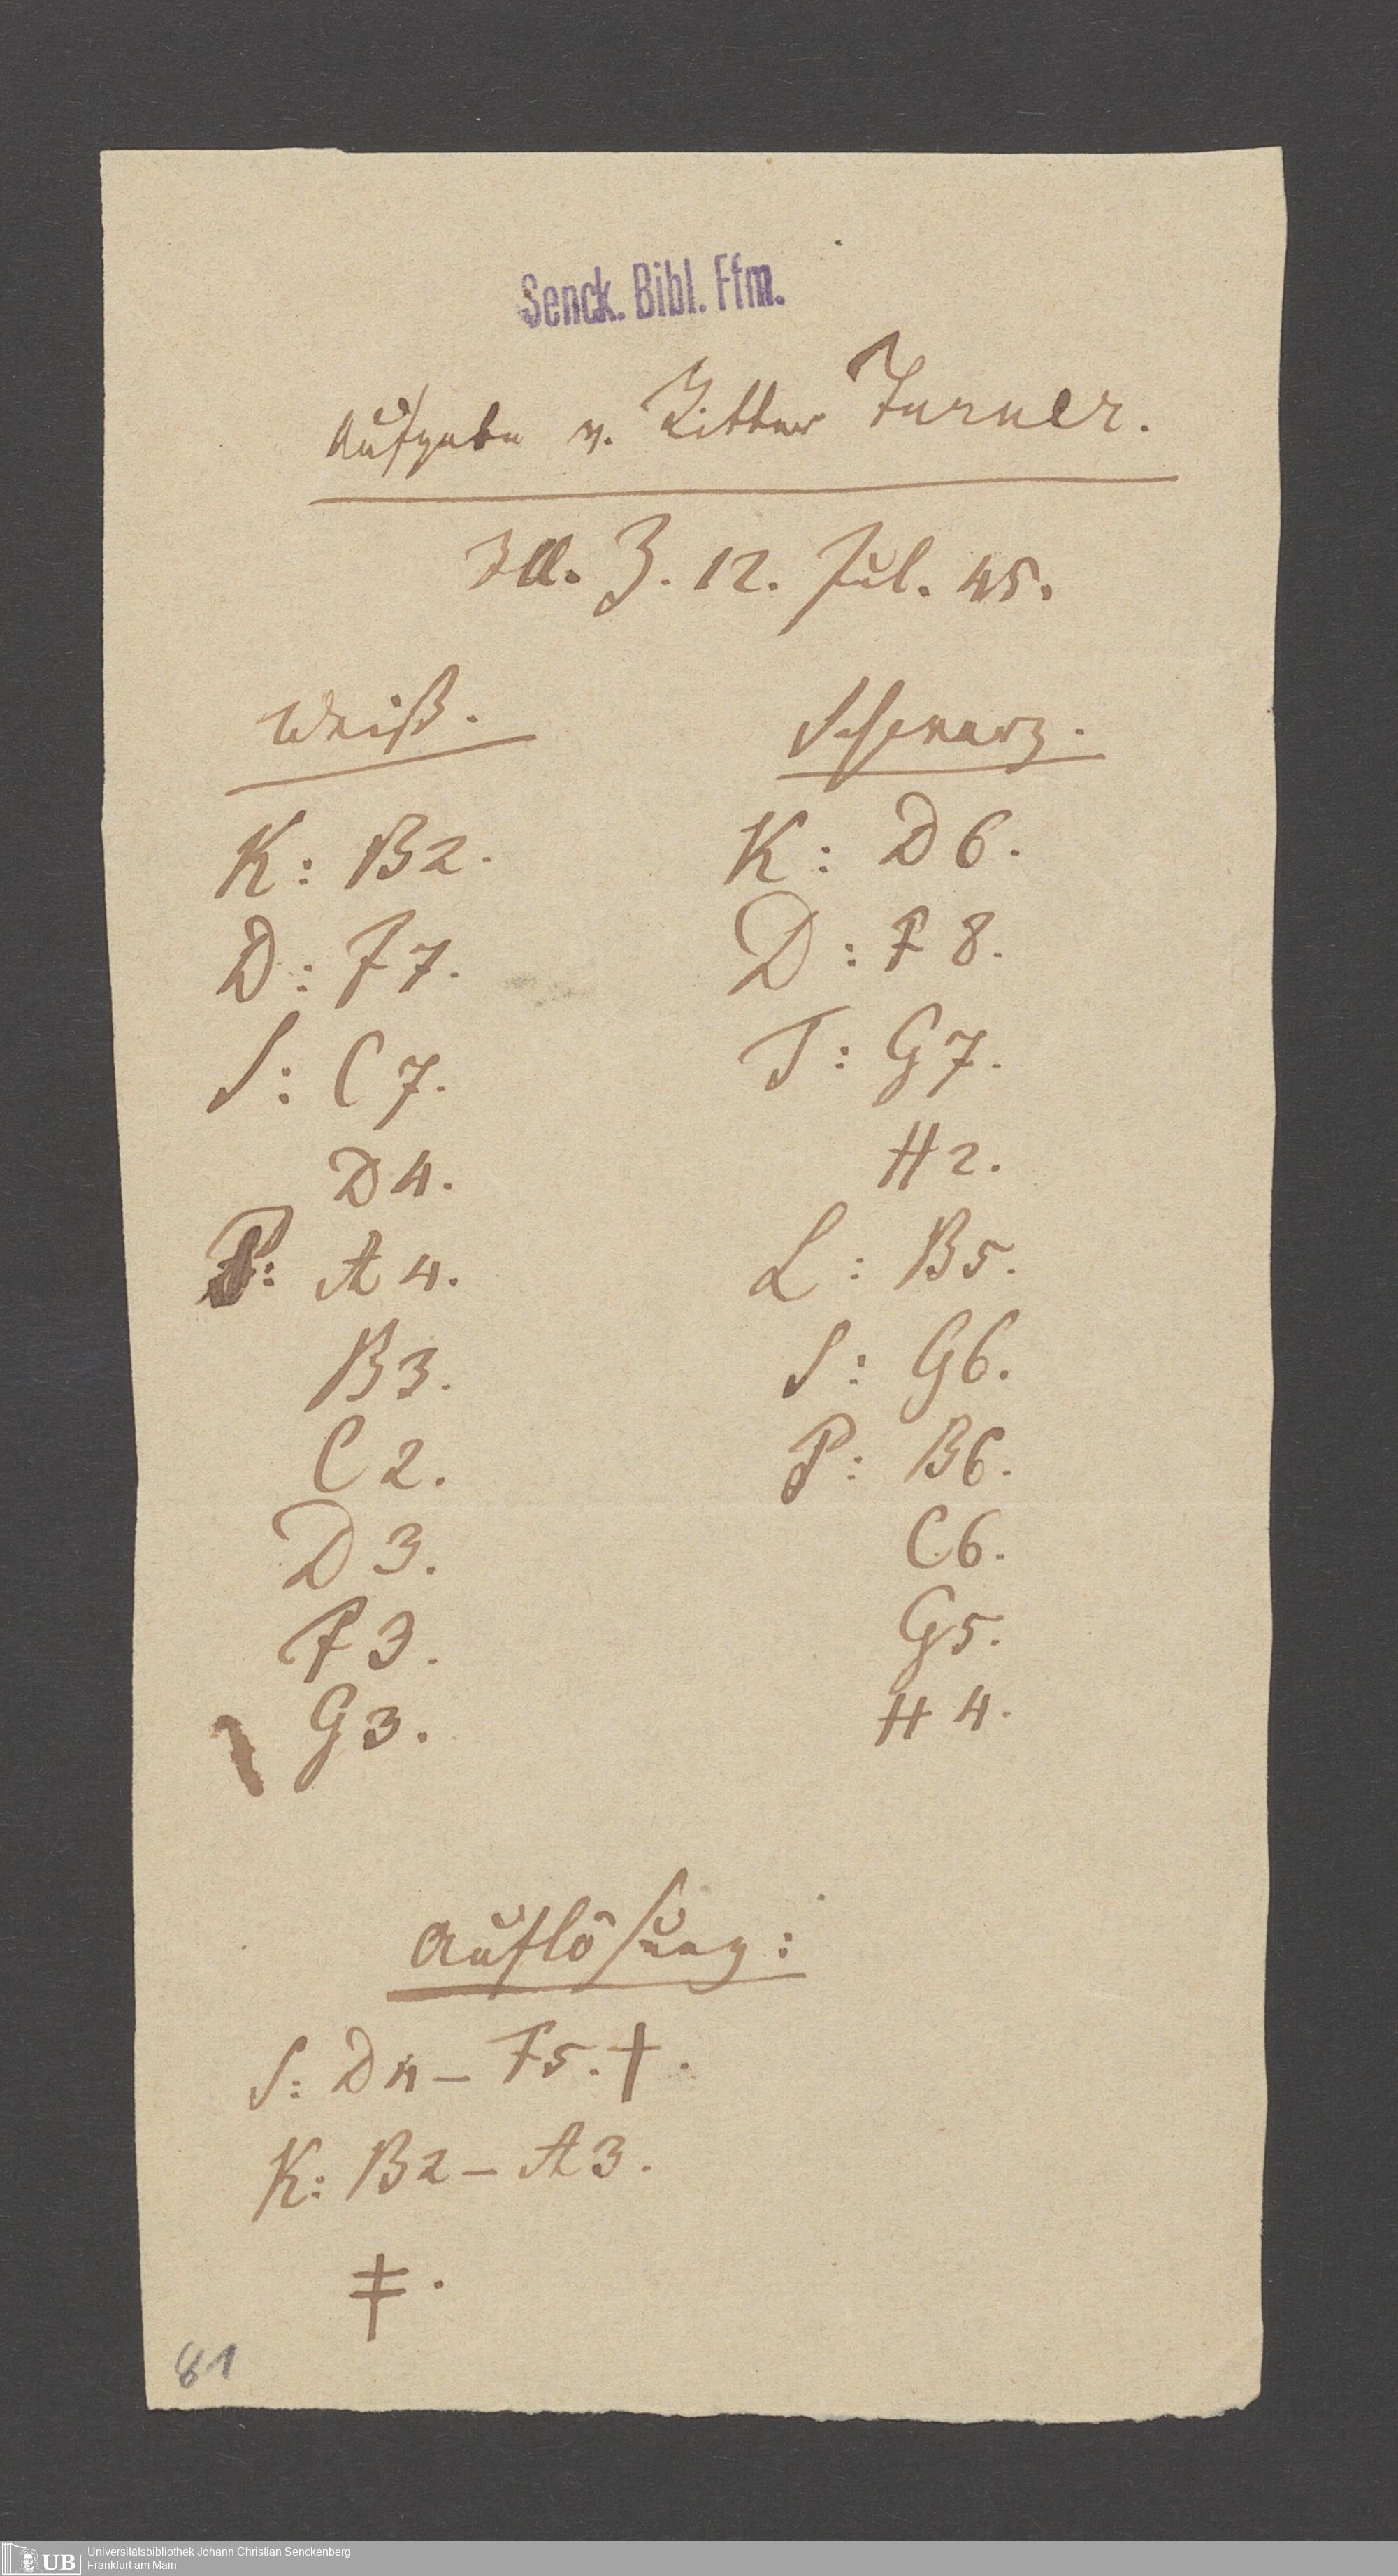 Senck. Bibl. Ffm.
Aufgabe v. Ritter Turner.
Ill. Z. 12. Jul. 45.
Weiß.
K: B2.
D: F7.
S: C7.
D4.
P: A4.
B3.
C2.
D3.
F3.
G3.
Schwarz.
K: D6.
D: F8.
T: G7.
H2.
L: B5.
S: G6.
P: B6.
C6.
G5.
H4.
Auflösung:
S: D4 – F5. †.
K: B2 – A3.
‡.
81
UB
Universitätsbibliothek Johann Christian Senckenberg
Frankfurt am Main